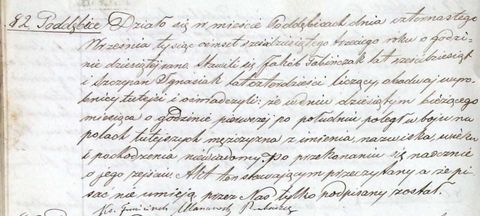 82. Poddębice Działo się w mieście Poddębicach dnia czternastego
Września tysiąc ośmset sześćdziesiątego trzeciego roku o godzi-
nie dziesiątej rano. Stawili się Jakób lat sześćdziesiąt
i Szczepan Ignasiak lat czterdzieści liczący obadwaj wyro-
bnicy tutejsi i oświadczyli; że w dniu dziesiątym bieżącego
miesiąca o godzinie pierwszej po południu poległ w boju na
polach tutejszych mężczyzna z imienia, nazwiska, wieku
i pochodzenia niewiadomy. Po przekonaniu się naocznie
o jego zejściu Akt ten stawającym przeczytany a że pi-
sać nie umieją przez Nas tylko podpisany został.